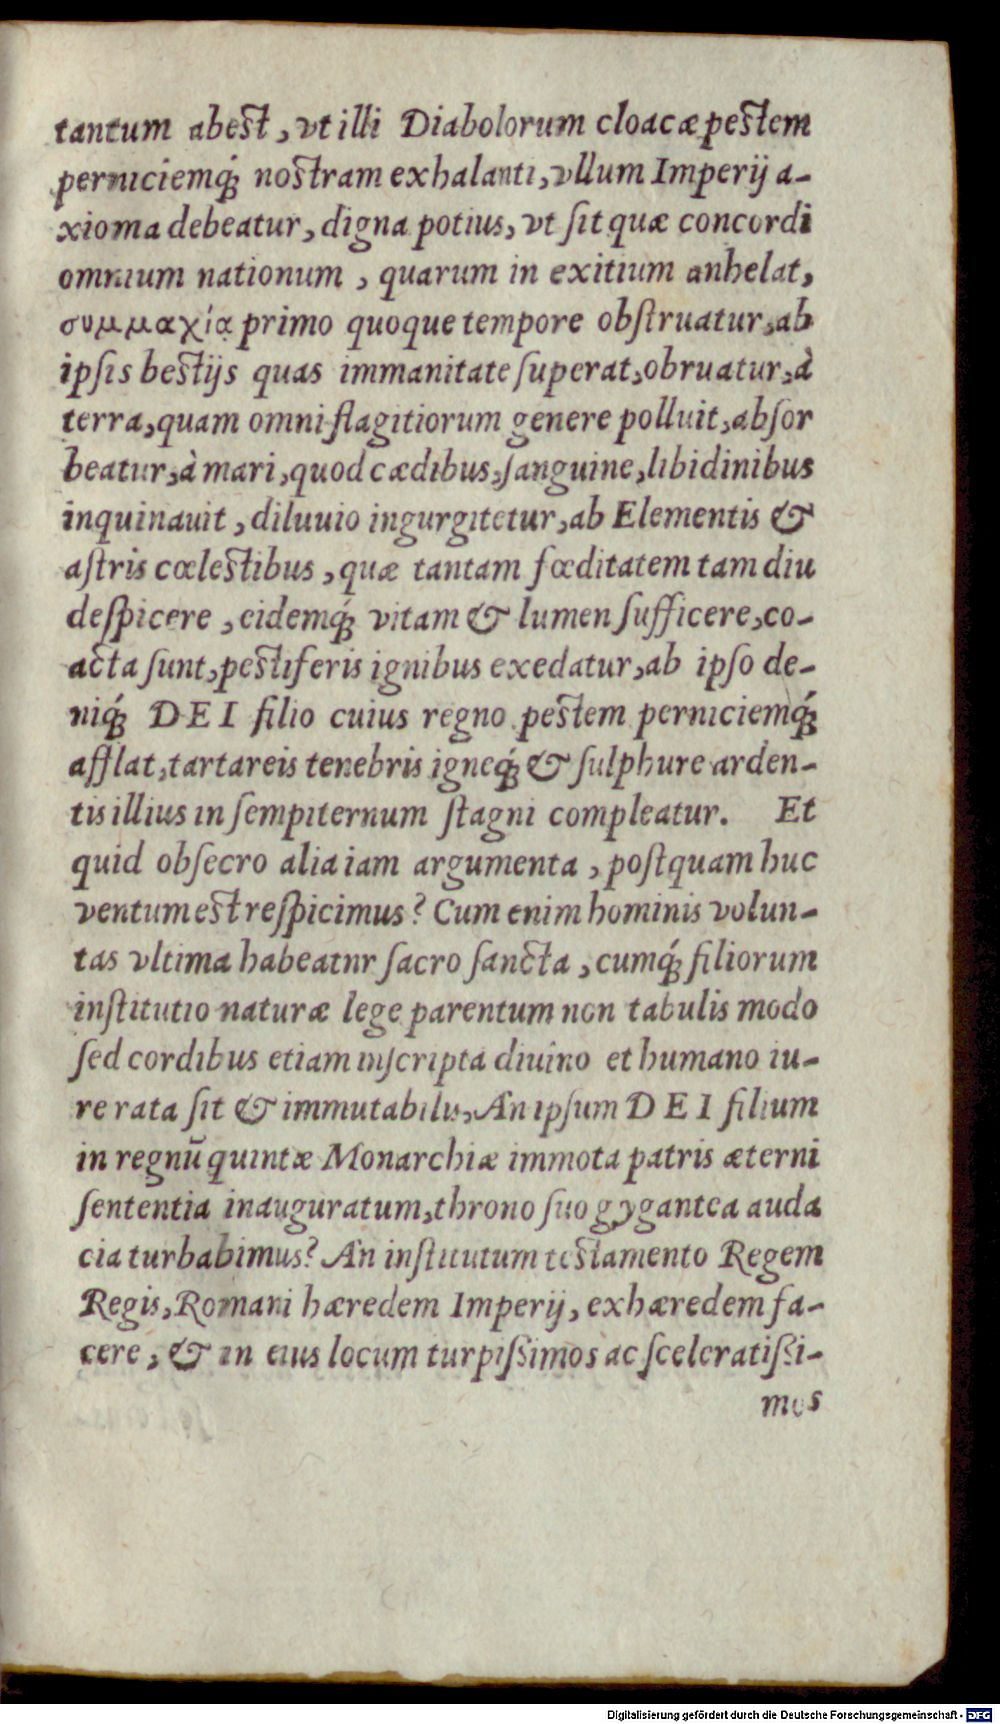 tantum abest, vt illi Diabolorum cloacæ pestem
perniciemq́; nostram exhalanti, vllum Imperij a-
xioma debeatur, digna potius, vt ſit quæ concordi
omnium nationum, quarum in exitium anhelat,
συμμαχία primo quoque tempore obſtruatur, ab
ipſis bestijs quas immanitate ſuperat, obruatur, à
terra, quam omni flagitiorum genere polluit, abſor
beatur, à mari, quod cædibus, ſanguine, libidinibus
inquinauit, diluuio ingurgitetur, ab Elementis &
aſtris cœlestibus, quæ tantam fœditatem tam diu
deſpicere, eidemq́; vitam & lumen ſufficere, co-
acta ſunt, pestiferis ignibus exedatur, ab ipſo de-
niq́; DEI filio cuius regno pestem perniciemq́;
afflat, tartareis tenebris igneq́; & ſulphure arden-
tis illius in ſempiternum ſtagni compleatur. Et
quid obſecro alia iam argumenta, poſtquam huc
ventum est reſpicimus? Cum enim hominis volun-
tas vltima habeatnr ſacro ſancta, cumq́; filiorum
inſtitutio naturæ lege parentum non tabulis modo
ſed cordibus etiam inſcripta diuino et humano iu-
re rata ſit & immutabilis, An ipſum DEI filium
in regnū quintæ Monarchiæ immota patris æterni
ſententia inauguratum, throno ſuo gygantea auda
cia turbabimus? An inſtitutum testamento Regem
Regis, Romani hæredem Imperij, exhæredem fa-
cere, & in eius locum turpiſsimos ac ſceleratiſsi-
mos
Digitalisierung gefördert durch die Deutsche Forschungsgemeinschaft - DFG